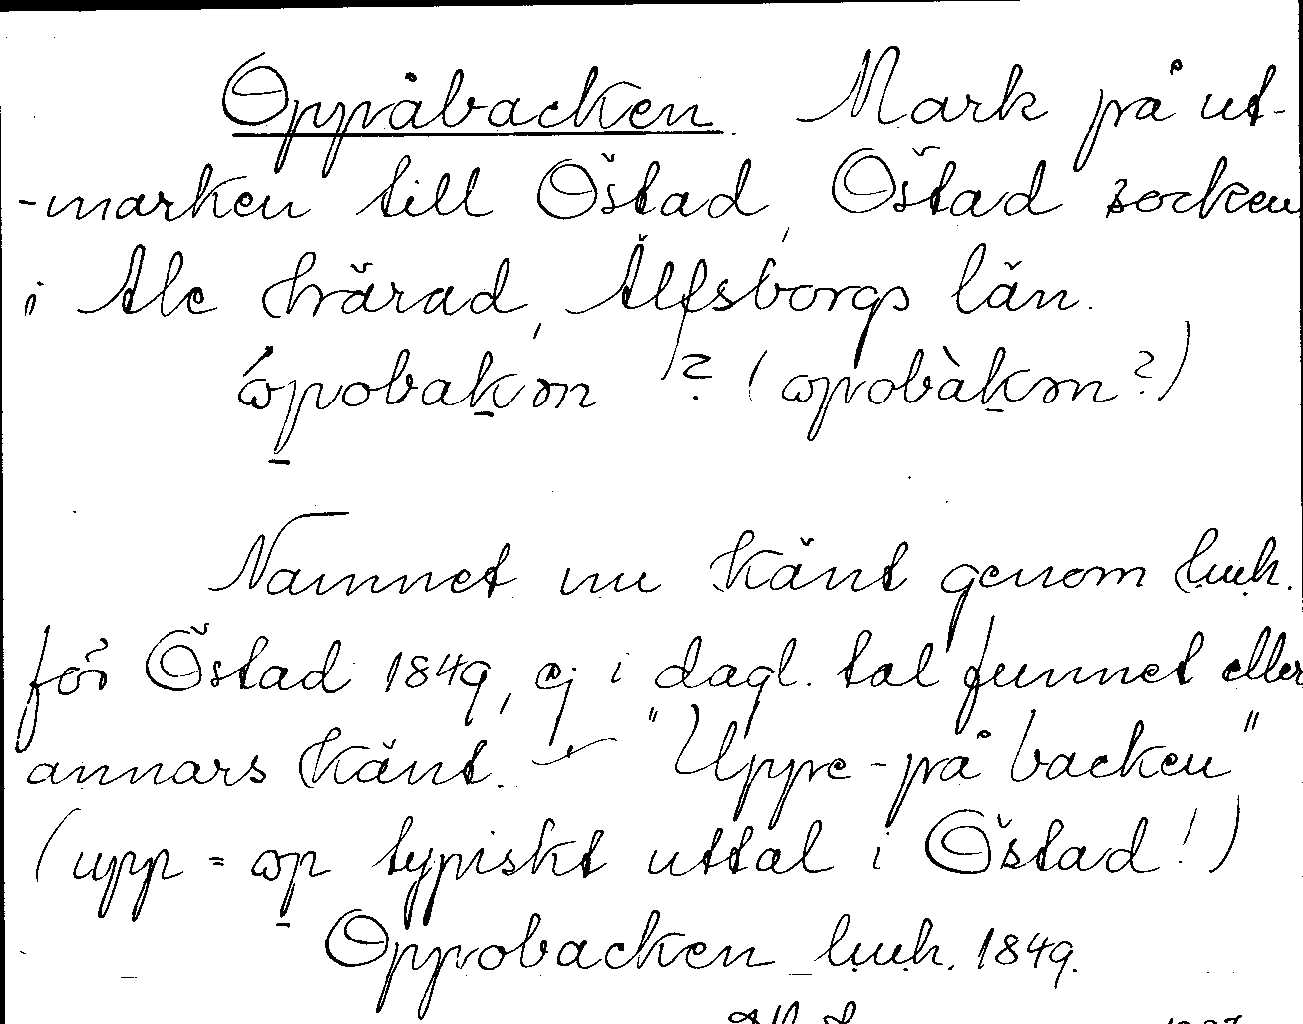 Oppåbacken. Mark på ut-
-marken till Östad, Östad socken
i Ale härad, Älfsborgs län.
ópobakən ? (opobàkən?)
Namnet nu känt genom l.u.h.
för Östad 1849, ej i dagl. tal funnet eller
annars känt. – "Uppe-på backen"
(upp = op typiskt uttal i Östad!)
Oppobacken l.u.h. 1849.